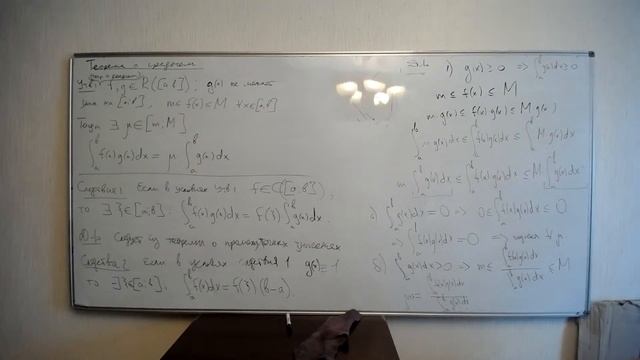 Теорема о среднем
(теор. о среднем)
Утв: f, g ∈ R([a,b]); g(x) не меняет
знак на [a,b], m ≤ f(x) ≤ M ∀x∈[a,b]
Тогда ∃ μ∈[m,M]
∫_a^b f(x)g(x)dx = μ ∫_a^b g(x)dx
Следствие 1 Если в условиях утв. f∈C([a,b]),
то ∃ ξ∈[a,b]: ∫_a^b f(x)g(x)dx = f(ξ)∫_a^b g(x)dx.
Д-во Следует из теоремы о промежуточных значениях
Следствие 2 Если в условиях следствия 1 g(x)≡1
то ∃ ξ∈[a,b]: ∫_a^b f(x)dx = f(ξ)(b-a).
Д-во 1) g(x) ≥ 0 ⇒ ∫_a^b g(x)dx ≥ 0
m ≤ f(x) ≤ M
m g(x) ≤ f(x) g(x) ≤ M g(x)
∫_a^b m g(x)dx ≤ ∫_a^b f(x)g(x)dx ≤ ∫_a^b M g(x)dx
m ∫_a^b g(x)dx ≤ ∫_a^b f(x)g(x)dx ≤ M ∫_a^b g(x)dx
а) ∫_a^b g(x)dx = 0 ⇒ 0 ≤ ∫_a^b f(x)g(x)dx ≤ 0
⇒ ∫_a^b f(x)g(x)dx = 0 ⇒ ∀ μ
б) ∫_a^b g(x)dx > 0 ⇒ m ≤ ∫_a^b f(x)g(x)dx / ∫_a^b g(x)dx ≤ M
μ = ∫_a^b f(x)g(x)dx / ∫_a^b g(x)dx